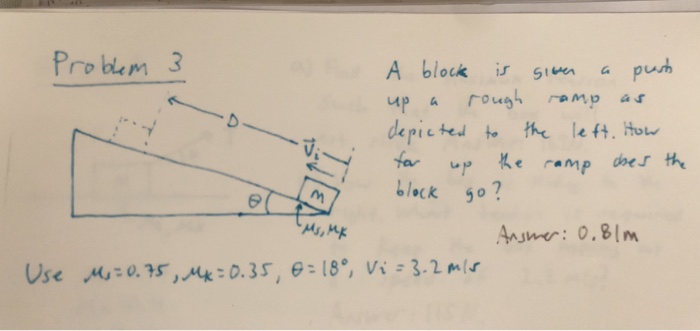 Problem 3
A block is given a push
up a rough ramp as
depicted to the left. How
far up the ramp does the
block go?
Answer: 0.81m
D
V⃗i
m
θ
μs, μk
Use μs=0.75, μk=0.35, θ=18°, Vi=3.2m/s